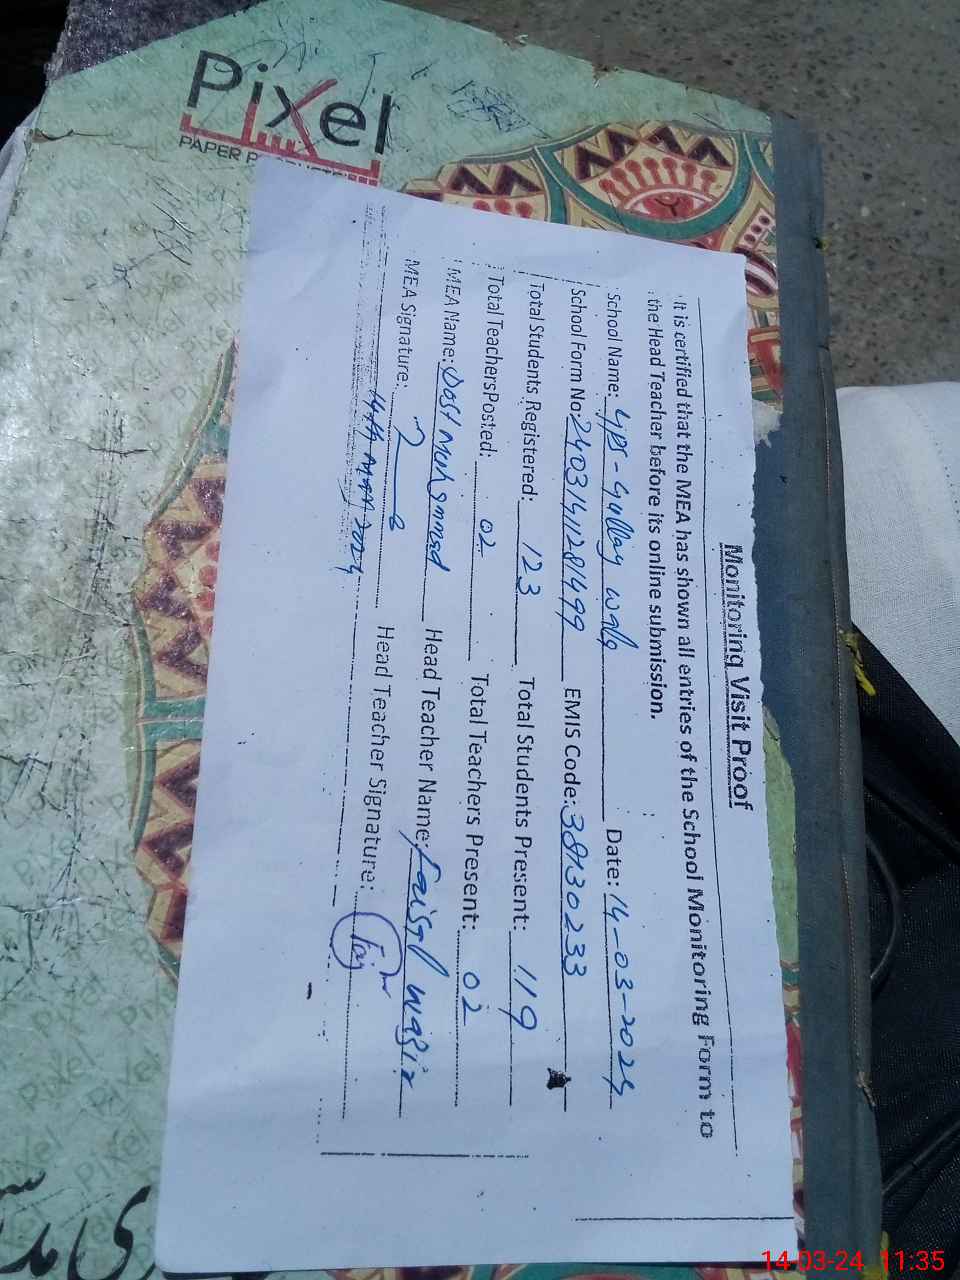 Pixel
PAPER PRODUCTS
Monitoring Visit Proof
It is certified that the MEA has shown all entries of the School Monitoring Form to
the Head Teacher before its online submission.
School Name: GPS - Gullay Wala Date: 14-03-2024
School Form No: 24031411281499 EMIS Code: 38130233
Total Students Registered: 123 Total Students Present: 119
Total TeachersPosted: 02 Total Teachers Present: 02
MEA Name: Dost Muhammad Head Teacher Name: Faisal
MEA Signature: Head Teacher Signature:
14th Mar 2024
14-03-24 11:35